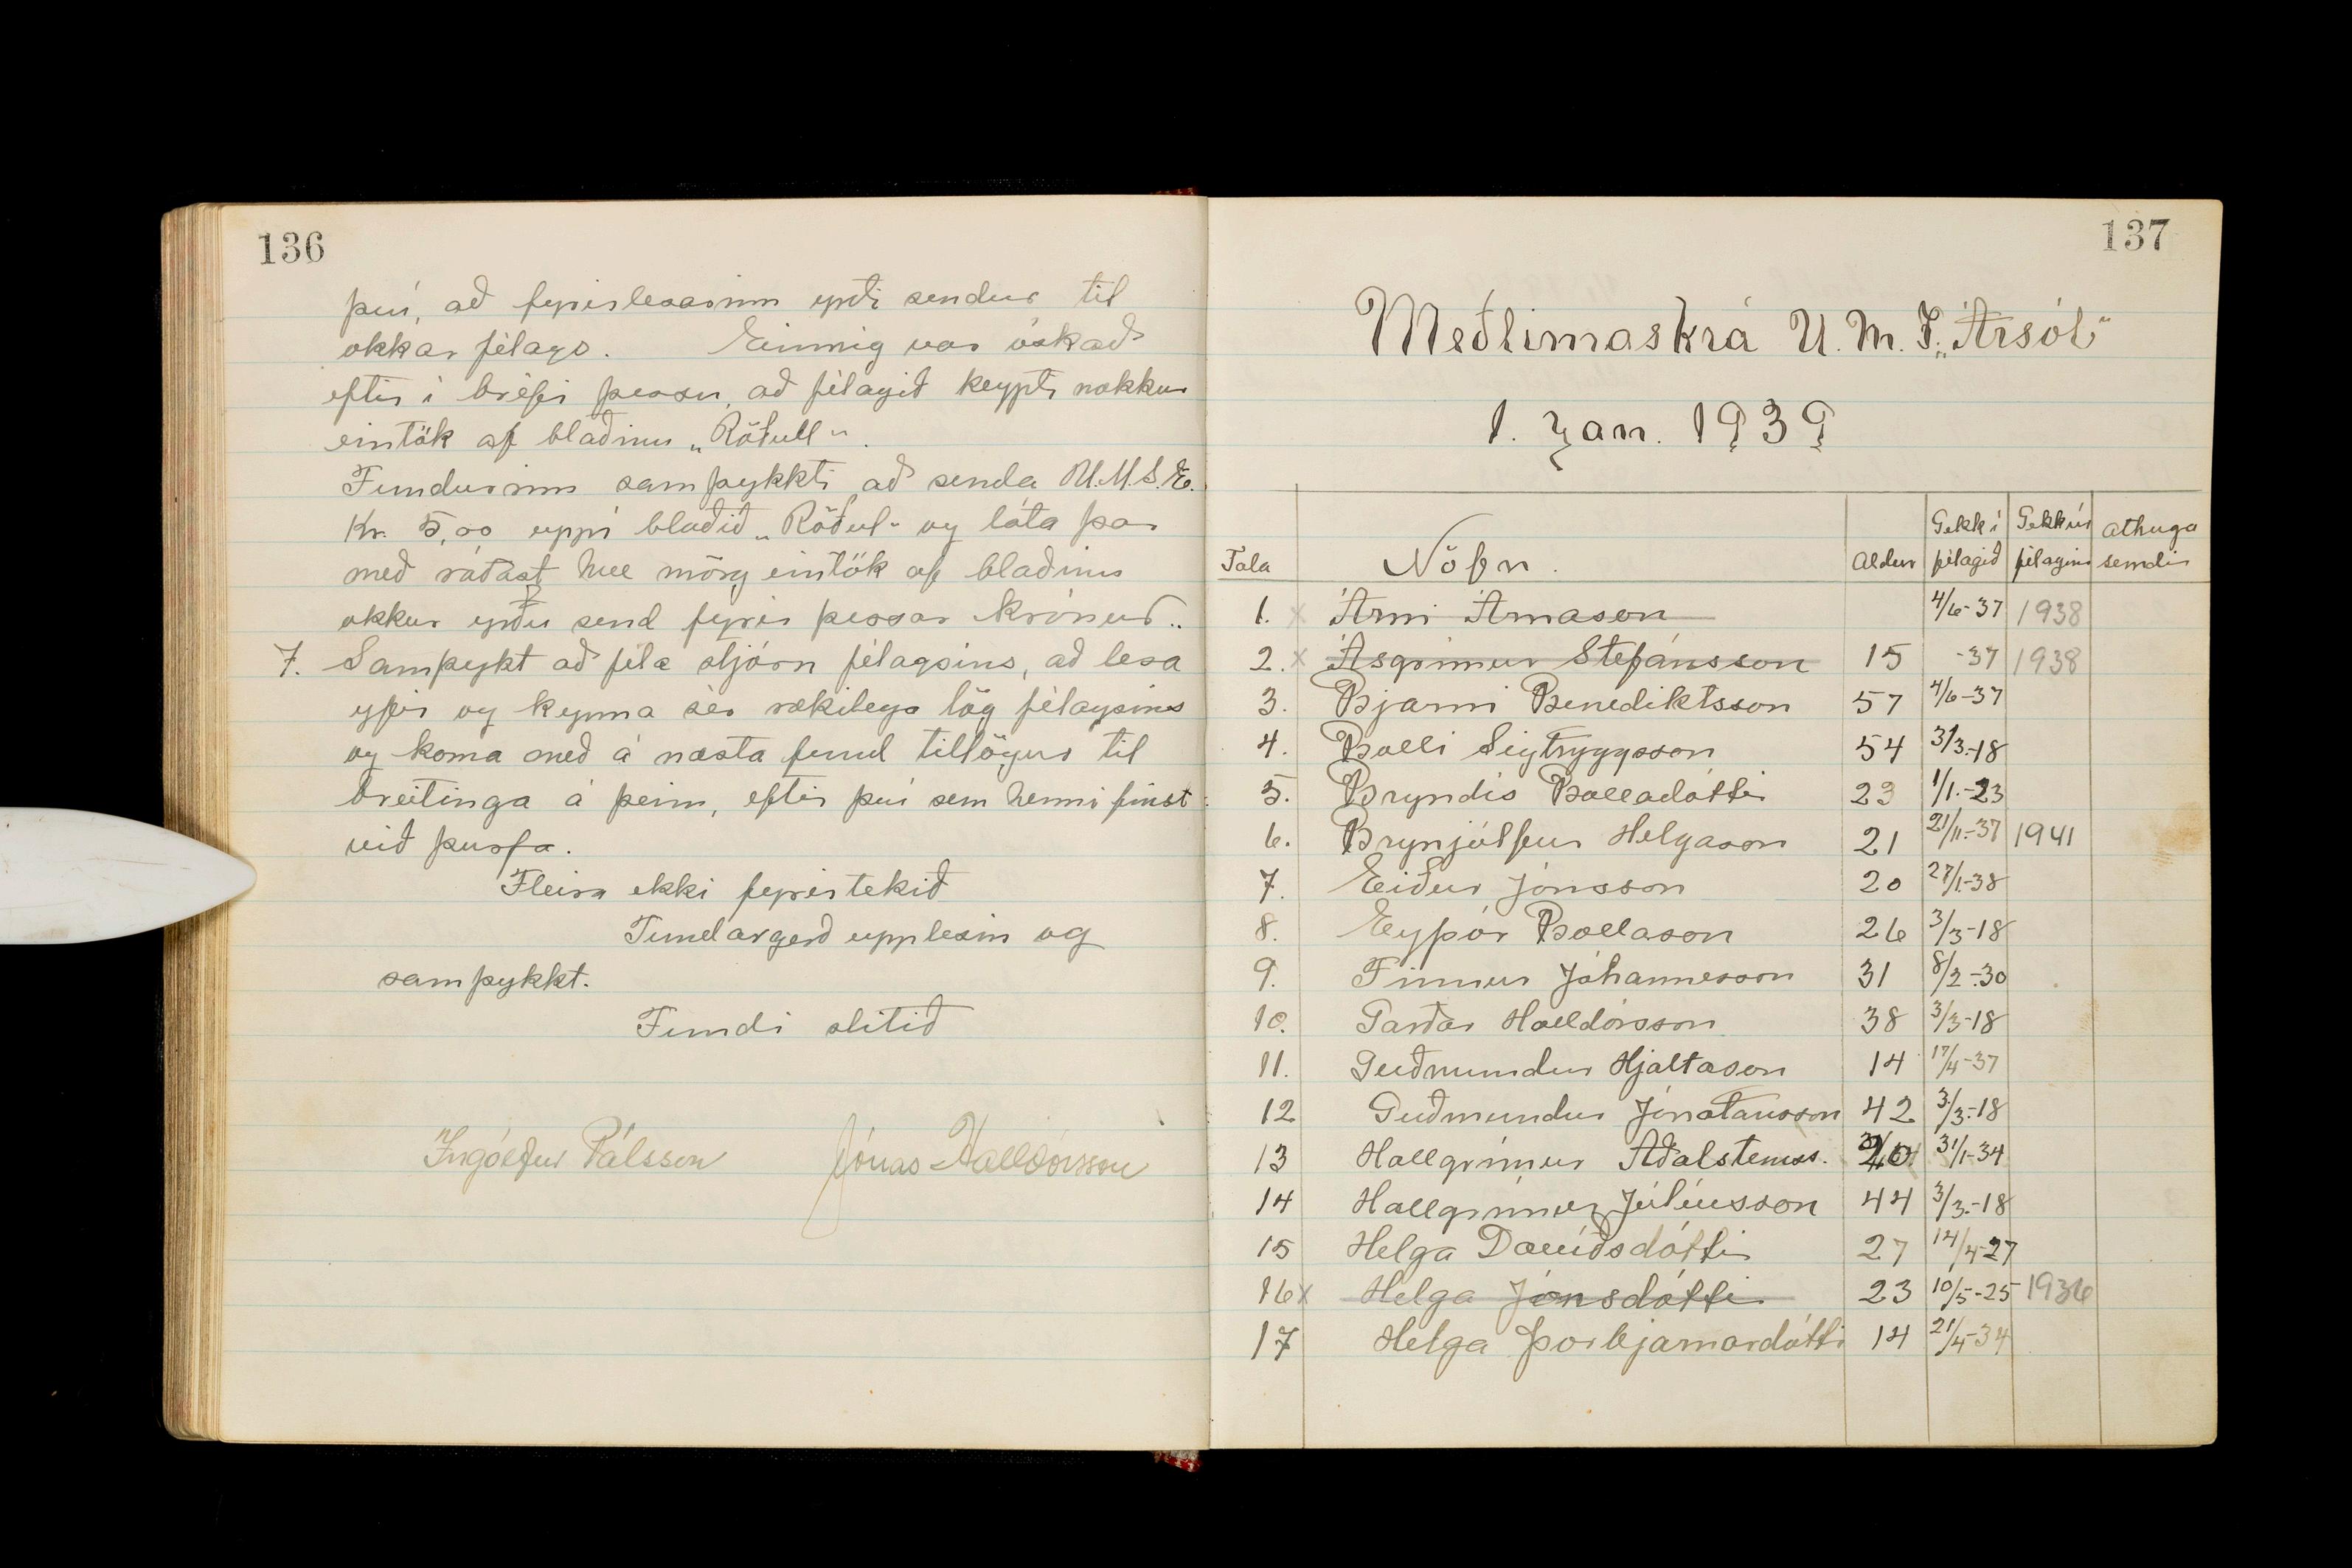 136
því, að fyrirlesarinn yrði sendur til
okkar félags. Einnig var óskað
eftir í bréfi þessu, að félagið keypti nokkur
eintök af blaðinu „Röðull“.
Fundurinn samþykkti að senda U.M.S.E.
Kr. 5,00 uppí blaðið „Röðul“ og láta þar
með ráðast hve mörg eintök af blaðinu
okkur yrðu send fyrir þessar krónur..
7. Samþykt að fela stjórn félagsins, að lesa
yfir og kynna sér rækilega lög félagsins
og koma með á næsta fund tillögur til
breitinga á þeim, eftir því sem henni finst
við þurfa.
Fleira ekki fyrirtekið
Fundargerð upplesin og
samþykkt.
Fundi slitið
Ingólfur Pálsson Jónas Halldórsson
137
Meðlimaskrá U.M.F. „Ársól“
1. Jan. 1939
Tala Nöfn. Aldur Gekk í félagið Gekk úr félaginu Athuga semdir
1. x Árni Árnason 4/6-37 1938
2. x Ásgrímur Stefánsson 15 -37 1938
3. Bjarni Benediktsson 57 4/6-37
4. Bolli Sigtryggsson 54 3/3-18
5. Bryndís Bolladóttir 23 1/1-23
6. Brynjólfur Helgason 21 21/11-37 1941
7. Eiður Jónsson 20 27/1-38
8. Eyþór Bollason 26 3/3-18
9. Finnur Jóhannesson 31 8/2-30
10. Garðar Halldórsson 38 3/3-18
11. Guðmundur Hjaltason 14 17/4-37
12 Guðmundur Jónatansson 42 3/3-18
13 Hallgrímur Aðalsteinss. 20 31/1-34
14 Hallgrímur Júlíusson 44 3/3-18
15 Helga Davíðsdóttir 27 14/4-27
16 x Helga Jónsdóttir 23 10/5-25 1936
17 Helga Þorbjarnardóttir 14 21/4-34